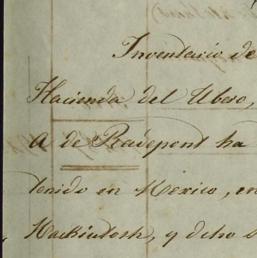 Inventario de
Hacienda del Ubero,
A de Radepont ha
tenido en Mexico, en
Mackintosh, y dcho